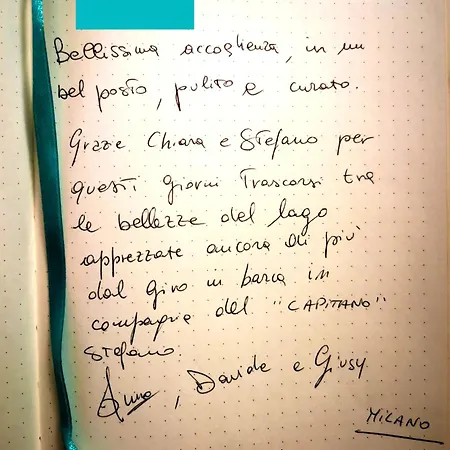 Bellissima accoglienza, in un
bel posto, pulito e curato.
Grazie Chiara e Stefano per
questi giorni trascorsi tra
le bellezze del lago
apprezzate ancora di più
dal giro in barca in
compagnia del "CAPITANO"
Stefano
Anna, Davide e Giusy
MILANO